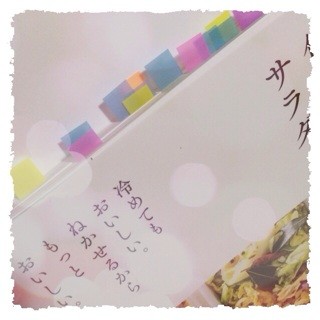 サラダ
冷めても
おいしい。
ねかせるから
もっと
おいしい。